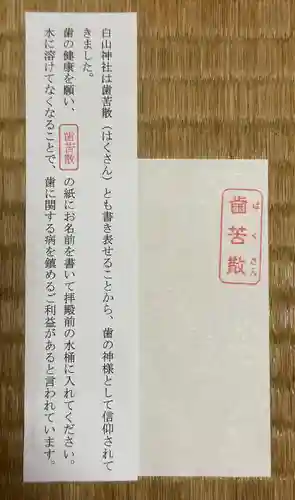 白山神社は歯苦散（はくさん）とも書き表せることから、歯の神様として信仰されて
きました。
歯の健康を願い、歯苦散の紙にお名前を書いて拝殿前の水桶に入れてください。
水に溶けてなくなることで、歯に関する病を鎮めるご利益があると言われています。
歯苦散
は く さん